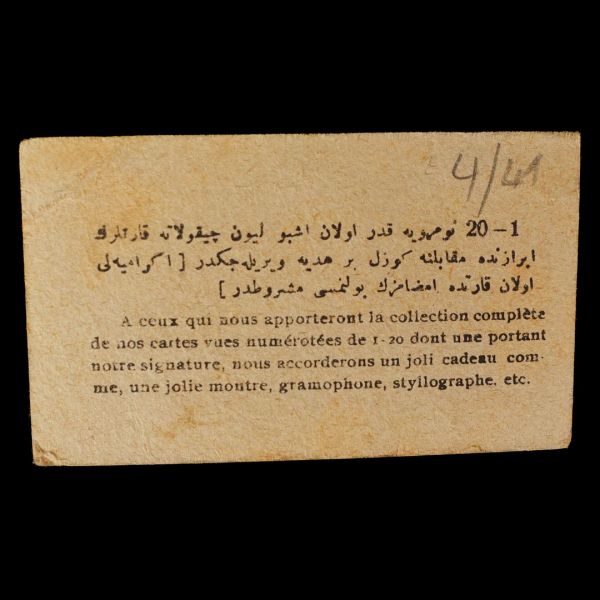 4/41
1–20 نومرویه قدر اولان اشبو لیون چیقولاته قارتلرك
ابرازنده مقابلنه كوزل بر هدیه ویریله‌جكدر [ اكرامیه‌لی
اولان قارتده امضامزك بولنمسی مشروطدر ]
A ceux qui nous apporteront la collection complète
de nos cartes vues numérotées de 1-20 dont une portant
notre signature, nous accorderons un joli cadeau com-
me, une jolie montre, gramophone, styllographe. etc.